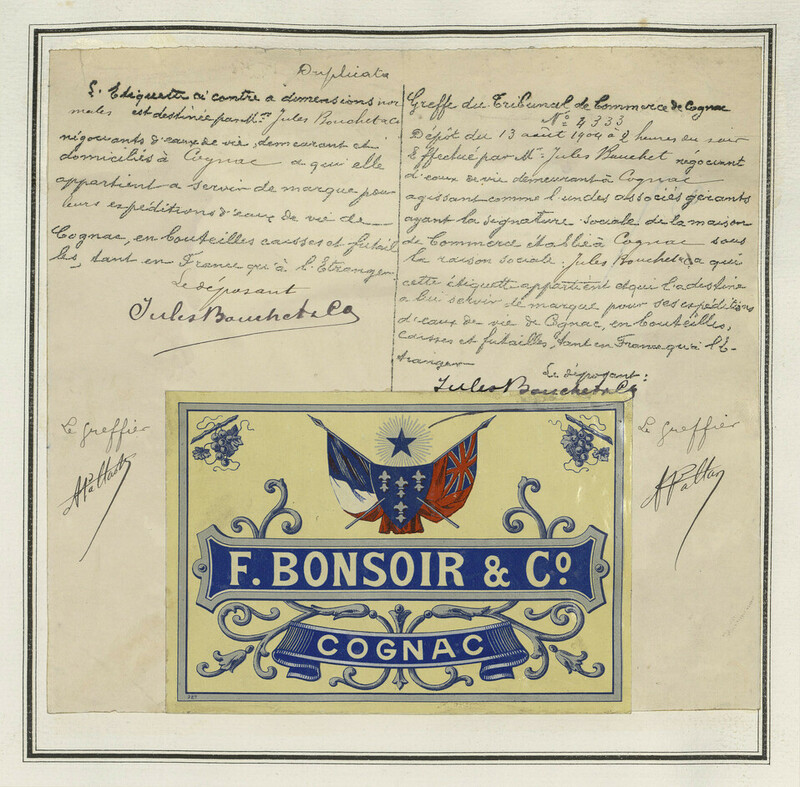 Duplicata
L'Etiquette ci contre a dimensions nor
males est destinée par Mr. Jules Bouchet & Co
négociants d'eaux de vie, demeurant et
domiciliés à Cognac a qui elle
appartient a servir de marque pour
leurs expéditions d'eaux de vie de
Cognac, en bouteilles caisses et futail
les, tant en France qu'à l'Etranger.
Le déposant
Jules Bouchet & Co
Greffe du Tribunal de Commerce de Cognac
No 4333
Dépôt du 13 août 1904 à 2 heures du soir
Effectué par Mr. Jules Bouchet négociant
d'eaux de vie demeurant à Cognac
agissant comme l'un des associés gérants
ayant la signature sociale de la maison
de Commerce établie à Cognac sous
la raison sociale: Jules Bouchet & Co a qui
cette étiquette appartient et qui l'a destine
a lui servir de marque pour ses expéditions
d'eaux de vie de Cognac, en bouteilles,
caisses et futailles, tant en France qu'à l'E-
tranger
Le déposant:
Jules Bouchet & Co
Le Greffier
Le Greffier
F. BONSOIR & Co.
COGNAC